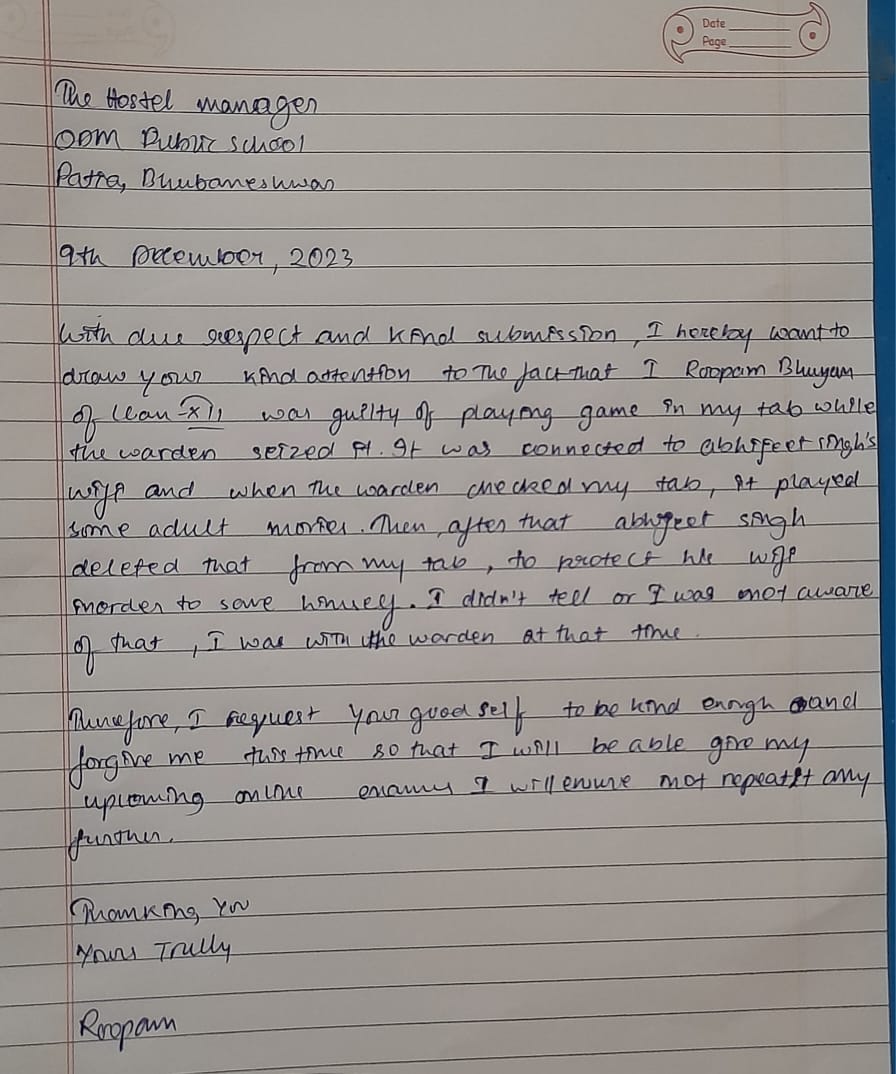 Date
Page
The Hostel manager
ODM Public school
Patia, Bhubaneshwar
9th December, 2023
With due respect and kind submission, I hereby want to
draw your kind attention to the fact that I Roopam Bhuyam
of clan-XI, was guilty of playing game in my tab while
the warden seized it. It was connected to abhijeet singh's
wifi and when the warden checked my tab, it played
some adult movies. Then, after that abhijeet singh
deleted that from my tab, to protect his wifi
inorder to save himself. I didn't tell or I was not aware
of that, I was with the warden at that time.
Therefore, I request your good self to be kind enough and
forgive me this time so that I will be able give my
upcoming online exams I will ensure not repeat it any
further.
Thanking, You
Yours Trully
Roopam